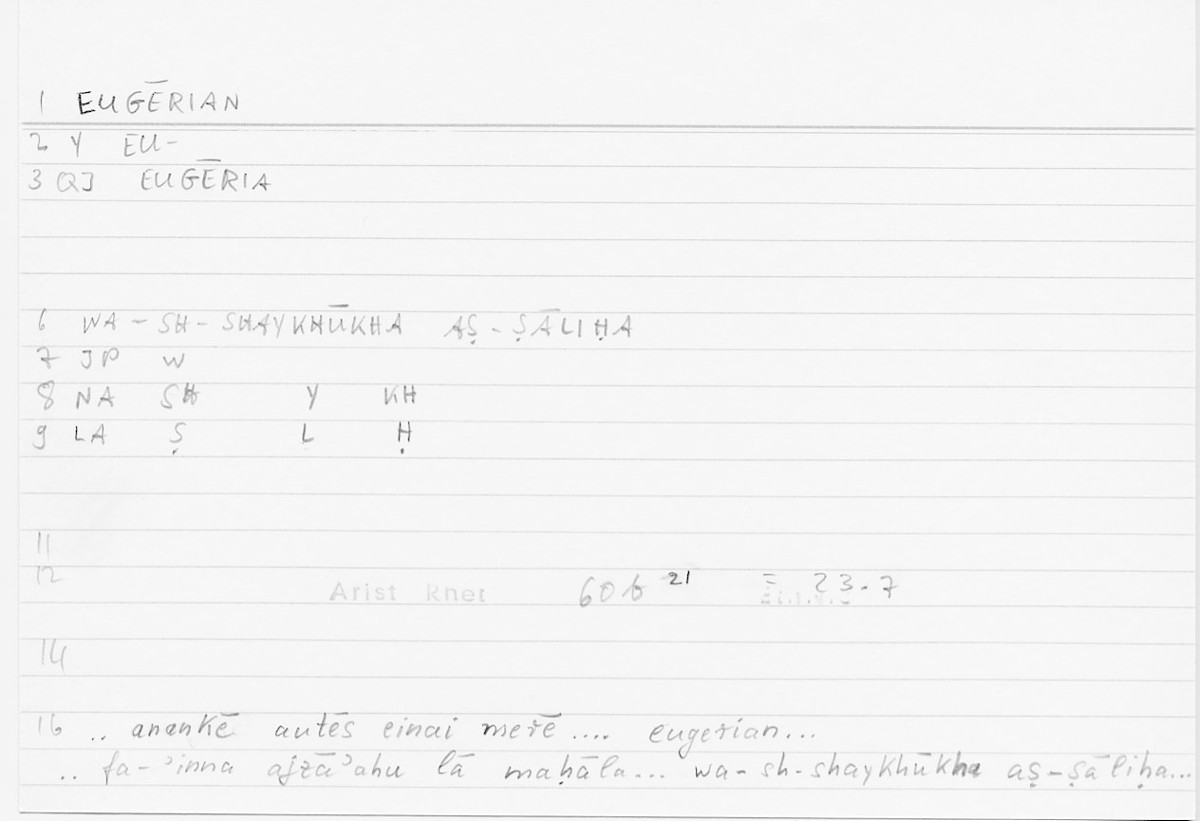 1 EUGĒRIAN
2 Y EU-
3 QJ EUGĒRIA
6 WA-SH-SHAYKHŪKHA AṢ-ṢĀLIḤA
7 JP W
8 NA SH Y KH
9 LA Ṣ L Ḥ
11
12 Arist Rhet 60b 21 = 23.7
14
16 .. anankē autēs einai merē.... eugerian...
.. fa-ʾinna ajzāʾahu lā maḥāla... wa-sh-shaykhūkha aṣ-ṣāliḥa...